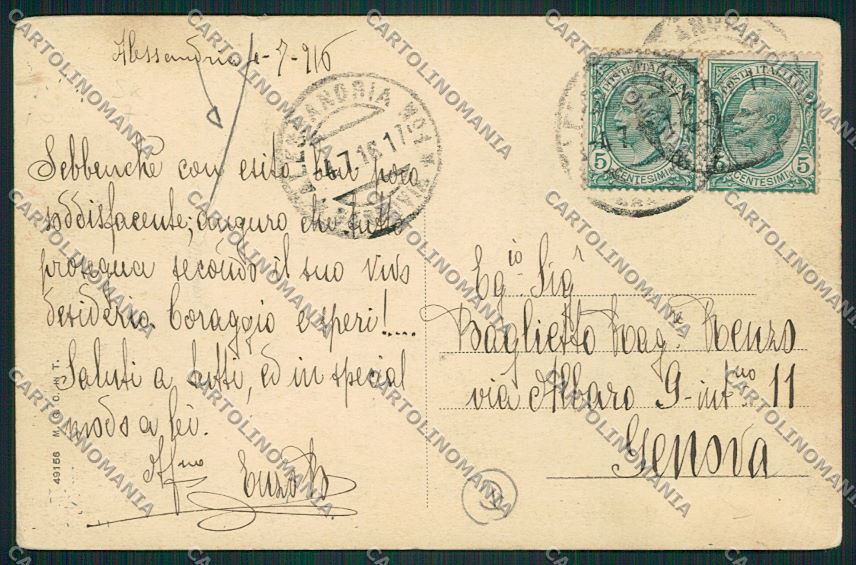 Alessandria 4-7-916
Sebbenchè con esito ben poco
soddisfacente; auguro che tutto
prosegua secondo il suo vivo
desiderio. Coraggio e speri!....
Saluti a tutti, ed in special
modo a lei.
Aff.mo
Enzo B
49156 M.
ALESSANDRIA
4.7.16.17
POSTE ITALIANE
5
CENTESIMI
POSTE ITALIANE
5
CENTESIMI
Eg.io Sig.r
Baglietto Rag.re Renzo
via Albaro 9-int.no 11
Genova
CARTOLINOMANIA